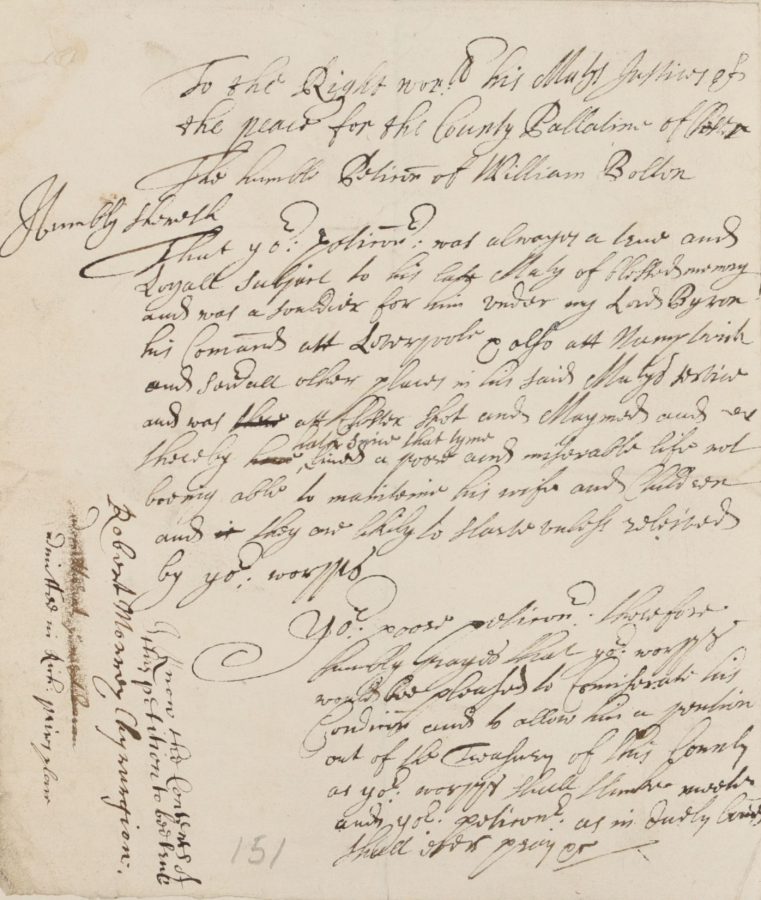 To the Right wor:ll his Ma:ties Justices of
the peace for the County Pallatine of Chester
The humble Peticon of William Bolton
Humbly sheweth
That yo:r peticon:r was alwayes a true and
Loyall subject to his late Ma:ty of blessed memory
and was a souldier for him vnder my Lord Byron
his Comand att Leverpoole & also att Namptwich
and sev:rall other places in his said Ma:tys service
and was there att Chester shot and Maymed and
thereby hath since that tyme lived a poore and miserable life not
beeing able to mainteine his wife and Children
and it they are likely to starve vnless releived
by yo:r worpps
Yo:r poore peticon:r therefore
humbly prayes that yo:r worpps
would bee pleased to Comiserate his
Condicon and to allow him a pention
out of the Treasury of this County
as yo:r worpps shall thinke meete
and yo:r peticon:r as in duety bound
shall ever pray &c
I know the Contents of
this petition to bee true
Robert Morrey Chyrurgion:
Admitted in Rich: place
151